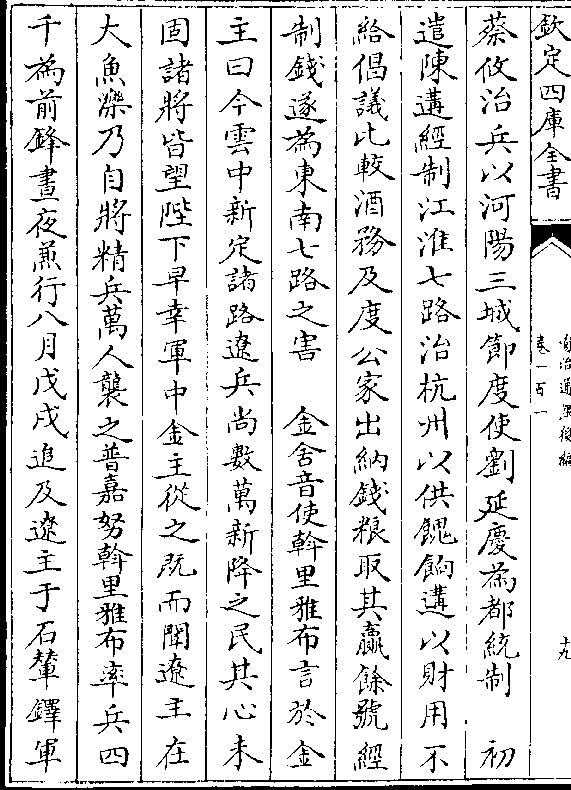 欽定四庫全書
資治通鑑後編
卷一百一
十九
蔡攸治兵以河陽三城節度使劉延慶為都統制　初
遣陳遘經制江淮七路治杭州以供餽餉遘以財用不
給倡議比較酒務及度公家出納錢粮取其贏餘號經
制錢遂為東南七路之害　金舍音使斡里雅布言於金
主曰今雲中新定諸路遼兵尚數萬新降之民其心未
固諸將皆望陛下早幸軍中金主從之既而聞遼主在
大魚濼乃自將精兵萬人襲之普嘉努斡里雅布率兵四
千為前鋒晝夜兼行八月戊戌追及遼主于石輦鐸軍